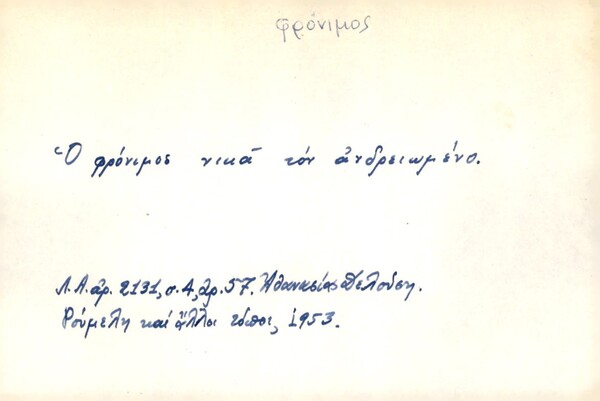 φρόνιμος
Ὁ φρόνιμος νικᾶ τόν ἀνδρειωμένο.
Λ.Α. ἀρ. 2131, σ. 4, ἀρ. 57.
Ρούμελη καί ἄλλοι τόποι, 1953.